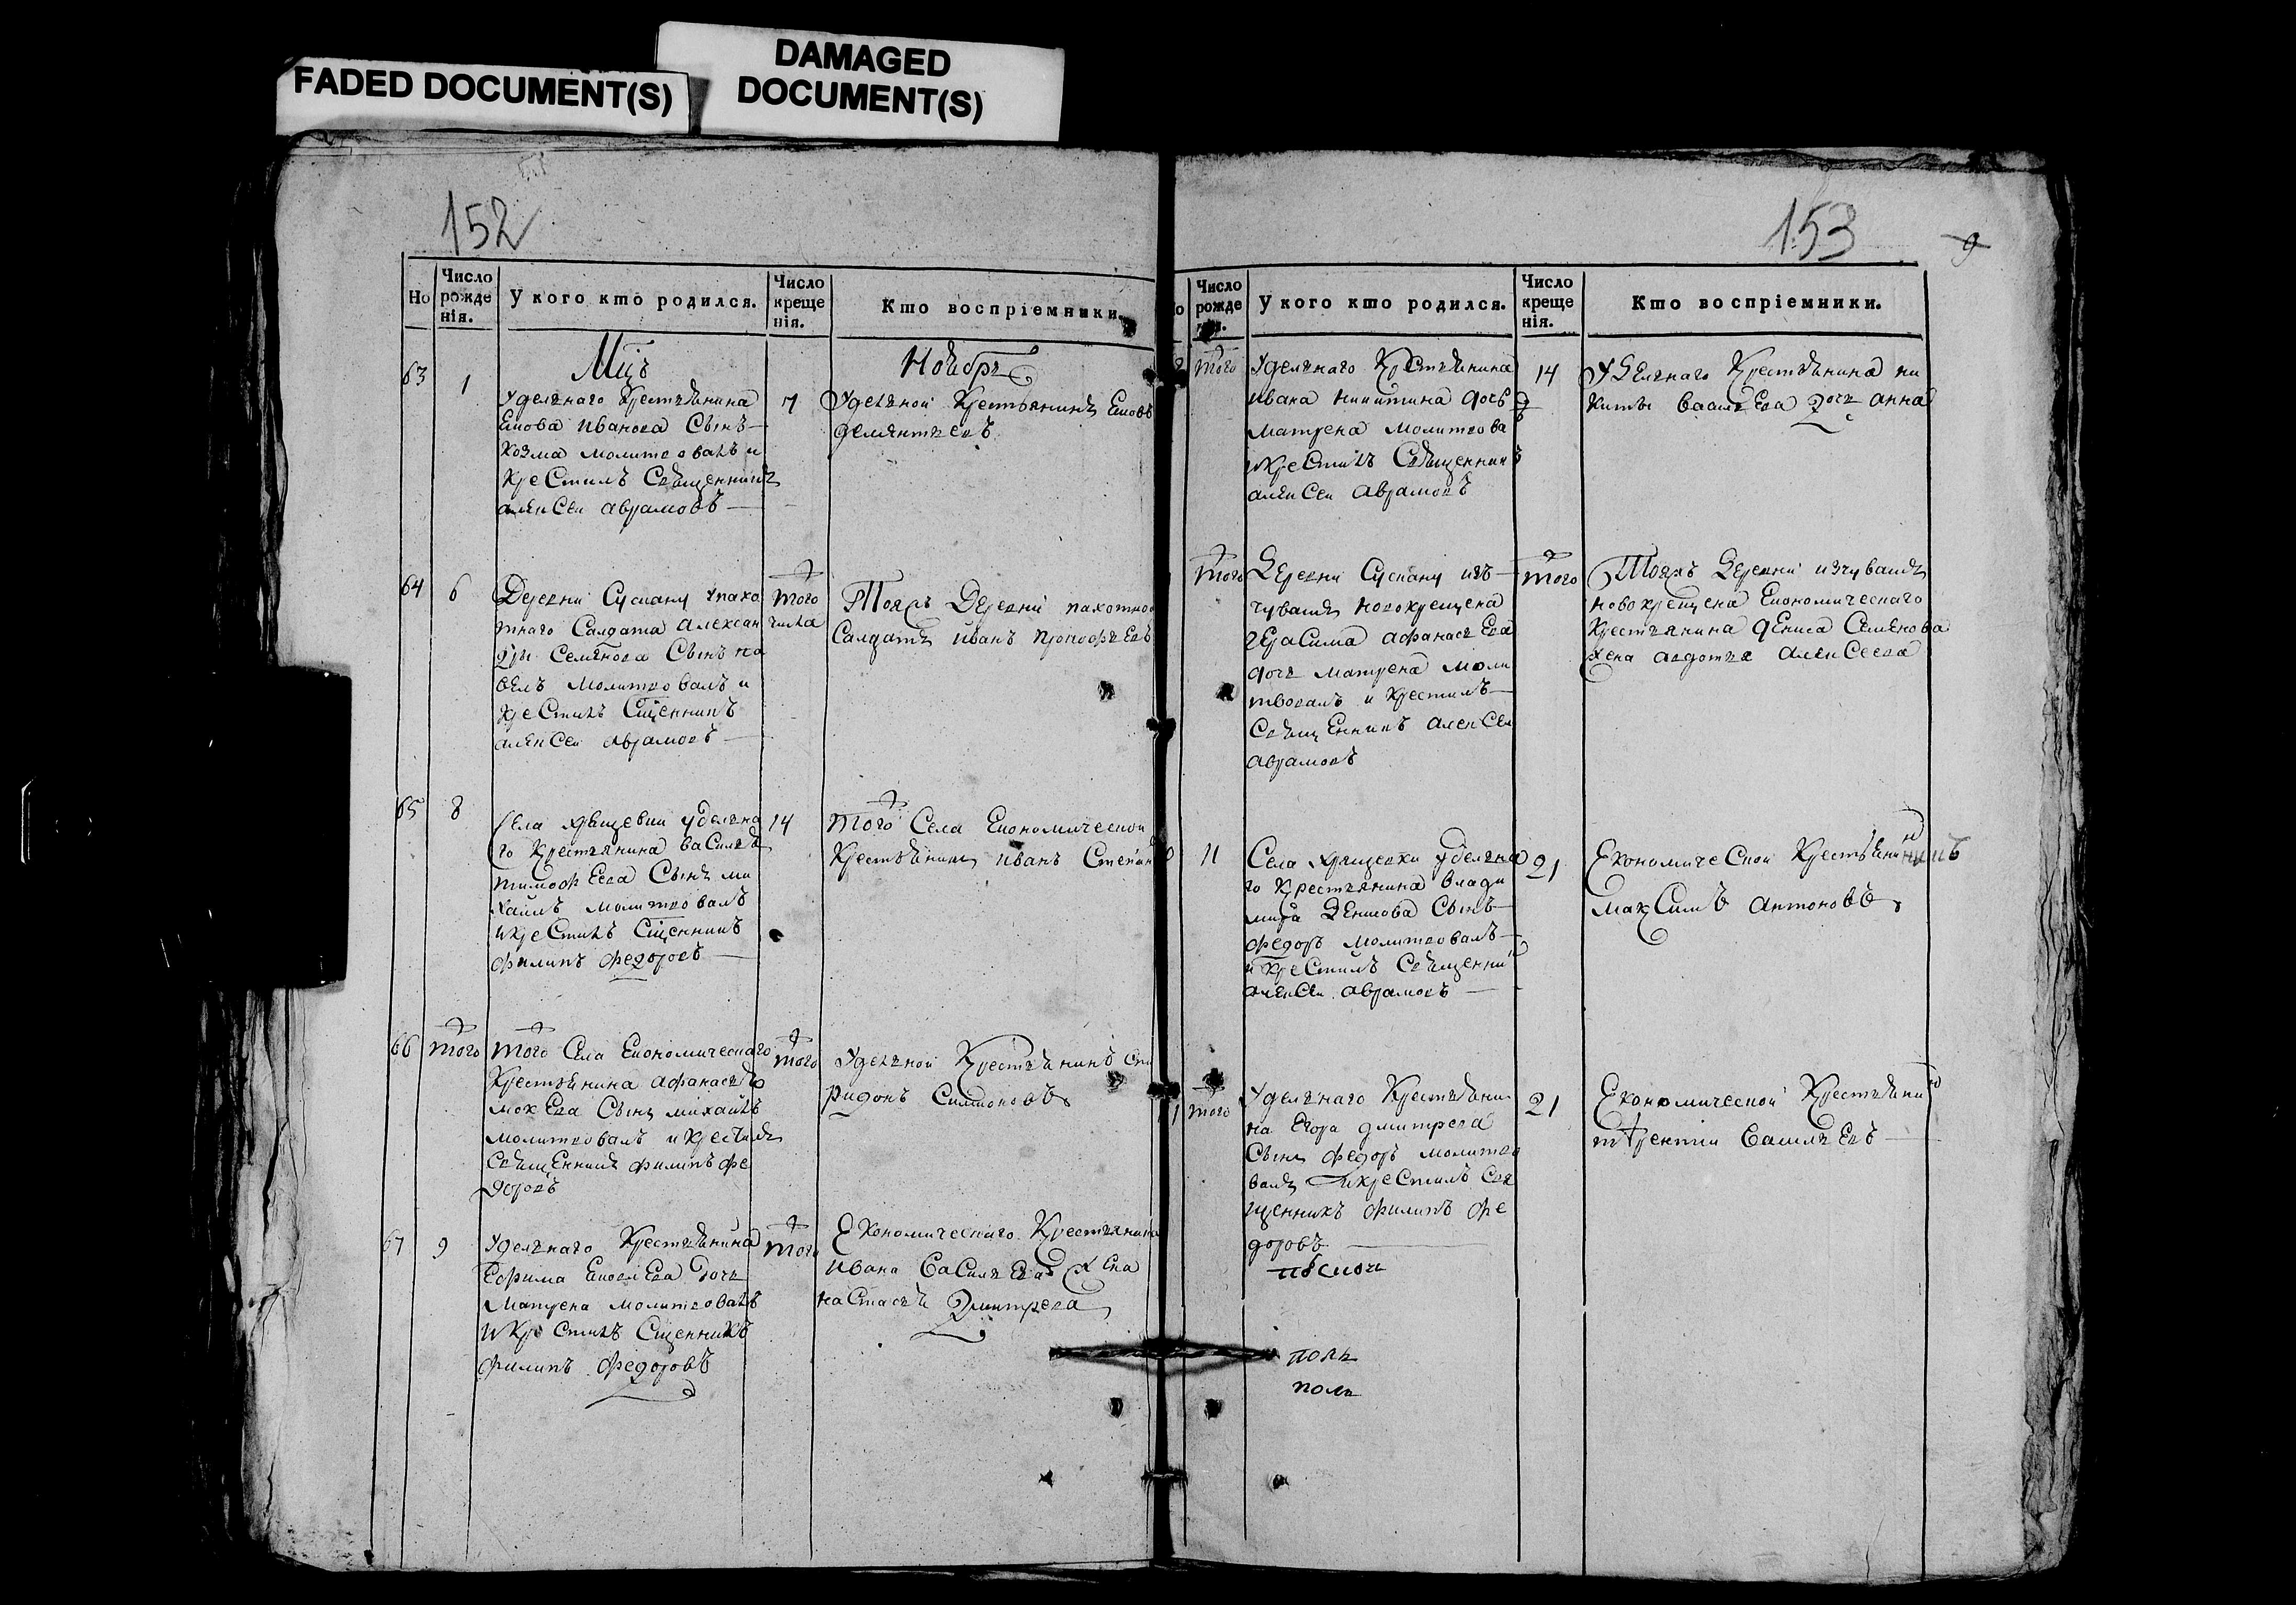 FADED DOCUMENT(S)
DAMAGED
DOCUMENT(S)
152
Но
Число
рожде
нія.
У кого кто родился.
Число
креще
нія.
Кто воспріемники.
Мцъ
Ноябрь
63
1
Уделнаго Крестьянина
Иванова Сынъ
Козма молитвовалъ и
Крестилъ Священникъ
алексеи аврамовъ
7
Уделной Крестьянинъ
64
6
Деревни Сускану упахо
тнаго Салдата алексан
дры Семенова Сынъ па
велъ молитвовалъ и
Крестилъ Сщенникъ
алексеи аврамовъ
того
числа
Тояжъ Деревни пахотнои
Салдатъ иванъ прокофьевъ
65
8
Села хрящевки уделна
го Крестьянина василья
тимофеева Сынъ ми
хаилъ молитвовалъ
икрестилъ Сщенникъ
филипъ федоровъ
14
того Села Економической
Крестьянинъ иванъ Степан
66
того
того Села Економическаго
Крестьянина афанасья
мокева Сынъ михаилъ
молитвовалъ икрестилъ
Священникъ филипъ фе
доровъ
того
Уделной Крестьянинъ спи
ридонъ Симоновъ
67
9
Уделнаго Крестьянина
Ефима дочь
матрена молитвовалъ
икрестилъ Сщенникъ
филипъ федоровъ
того
Економическаго Крестьянина
ивана васильева жена
настасья Дмитрева
153
9
Число
рожде
У кого кто родился.
Число
креще
нія.
Кто воспріемники.
того
Уделнаго Крестьянина
ивана никитина дочь
матрена молитвова
икрестилъ Священникъ
алексеи аврамовъ
14
Уделнаго Крестьянина ни
киты васильева дочь анна
того
Деревни Сускану изъ
чувашъ новокрещена
герасима афанасьева
дочь матрена моли
твовалъ и Крестилъ
Священникъ алексеи
аврамовъ
того
Тояжъ Деревни изчувашъ
новокрещена Економическаго
Крестьянина дениса Семенова
жена авдотья алексеева
11
Села хрящевки уделна
го Крестьянина влади
мира Сынъ
федоръ молитвовалъ
и крестилъ Священни
алексеи аврамовъ
21
Економической Крестьянинъ
максимъ антоновъ
того
Уделнаго Крестьяни
на Егора дмитрева
Сынъ федоръ молитво
валъ икрестилъ Свя
щенникъ филипъ фе
доровъ
21
Економической Крестьянин
терентии васильевъ
полъ
полъ